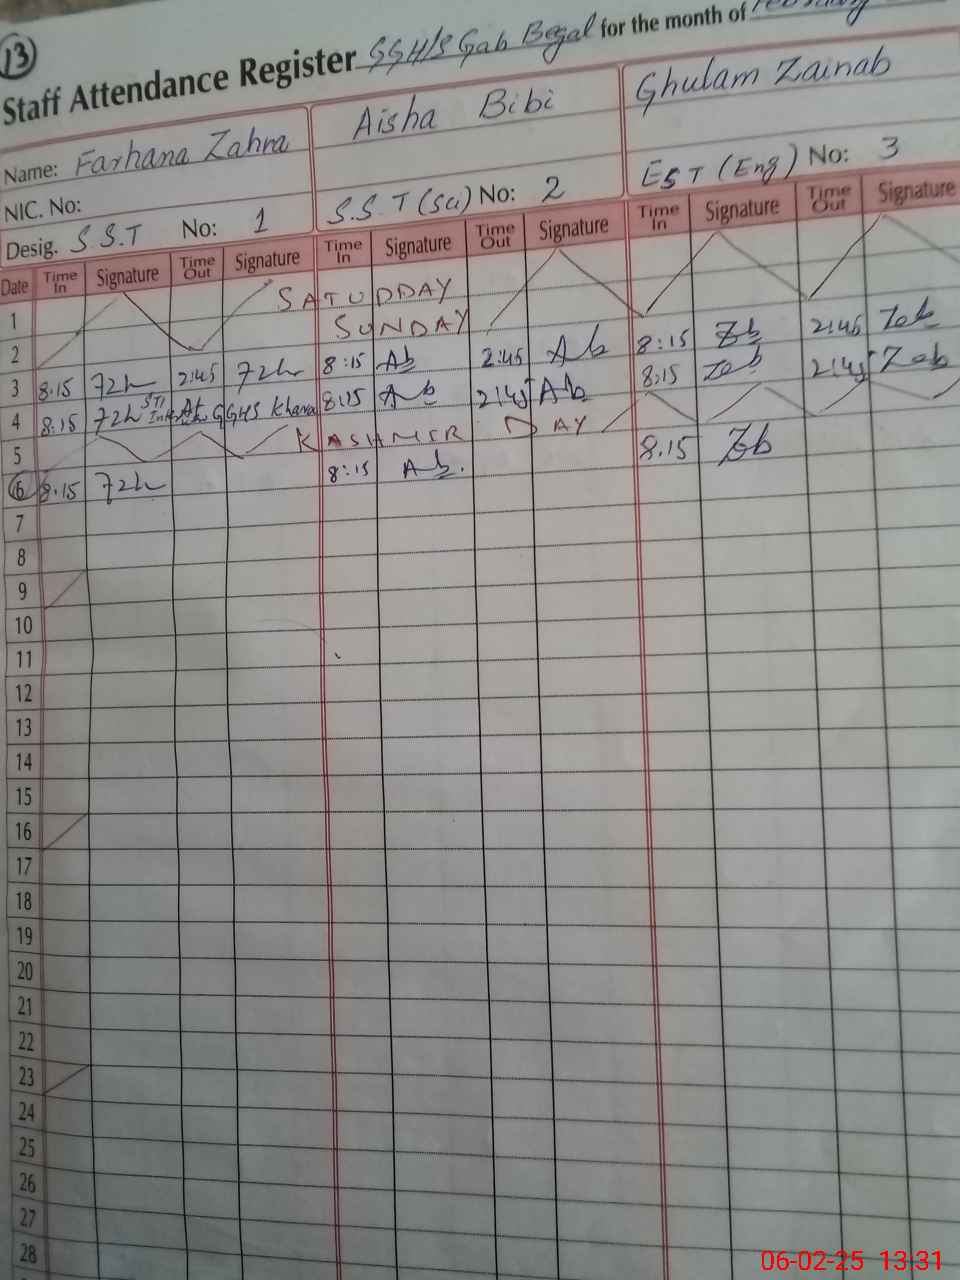 13
Staff Attendance Register GGH/S Gab Begal for the month of February
Name: Farhana Zahra Aisha Bibi Ghulam Zainab
NIC. No:
Desig. S.S.T No: 1 S.S.T (Sci) No: 2 EST (Eng) No: 3
Date Time In Signature Time Out Signature Time In Signature Time Out Signature Time In Signature Time Out Signature
1 SATUDDAY
2 SUNDAY
3 8:15 72h 2:45 72h 8:15 Ab 2:45 Ab 8:15 Zeb 2:45 Zeb
4 8:15 72h At GGHS Khana 8:15 Ab 2:45 Ab 8:15 Zeb 2:45 Zeb
5 KASHMIR DAY
6 8.15 72h 8:15 Ab. 8.15 Zeb
7
8
9
10
11
12
13
14
15
16
17
18
19
20
21
22
23
24
25
26
27
28
06-02-25 13:31